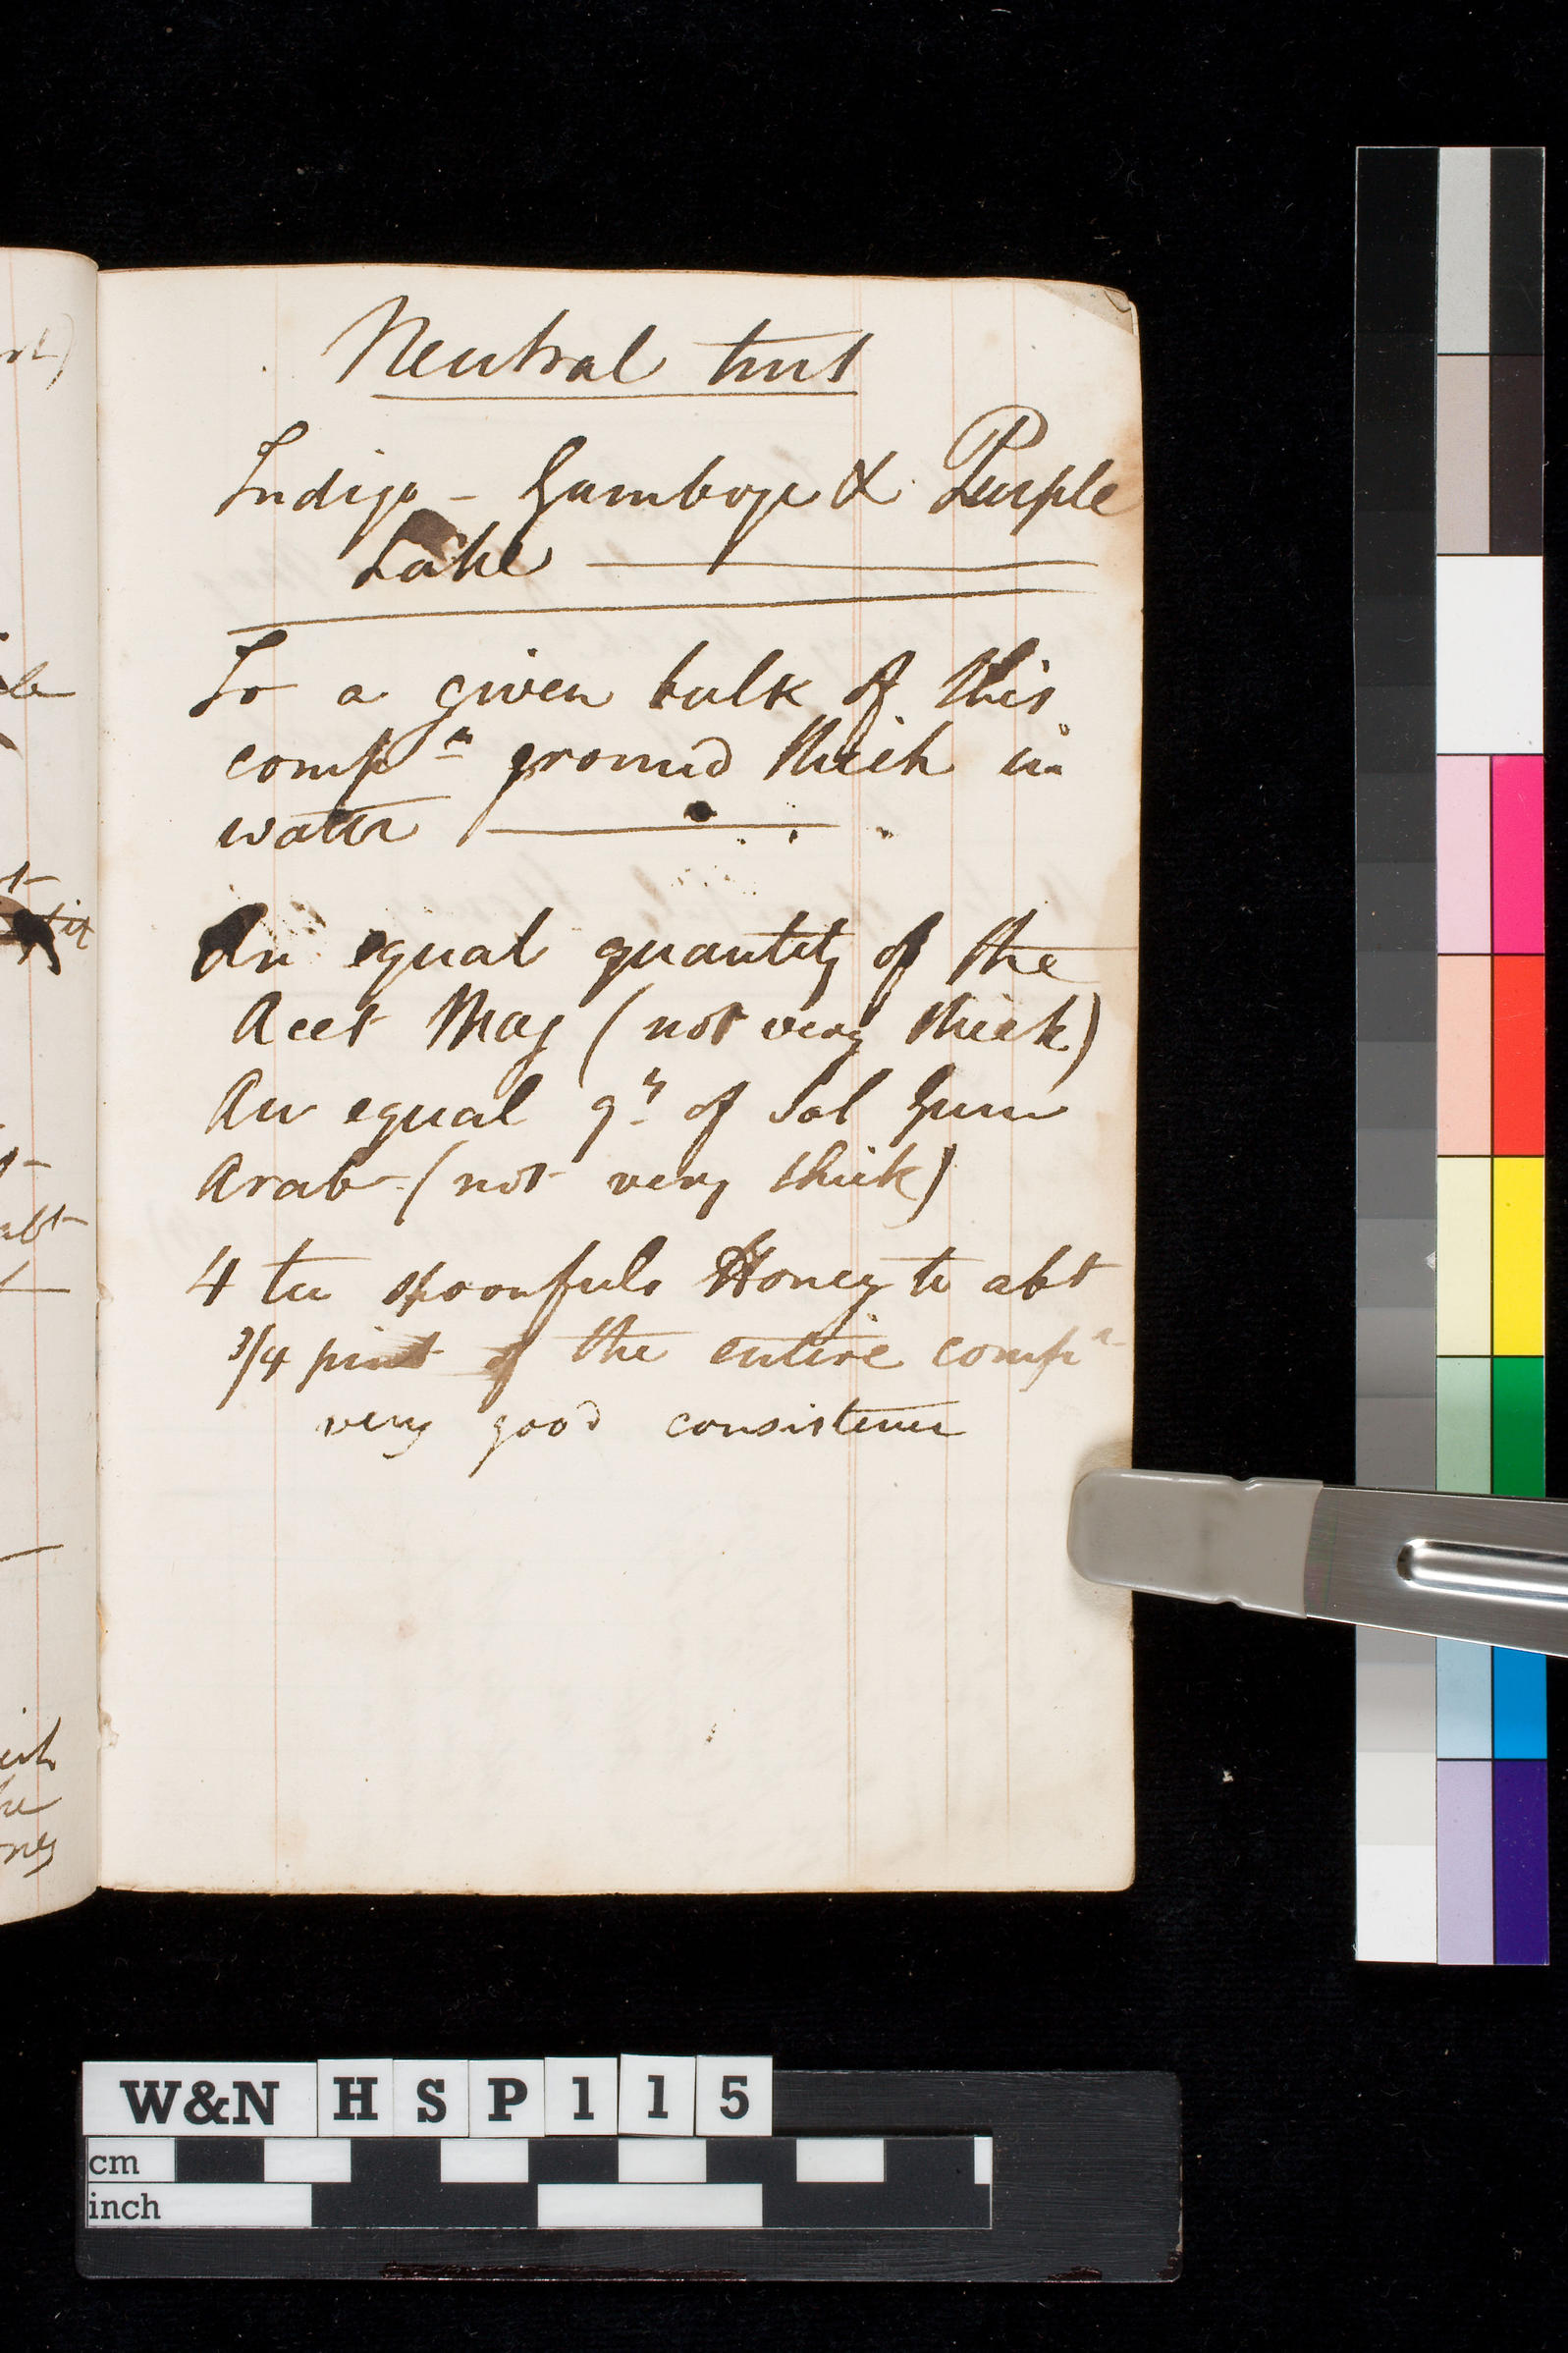 Neutral tint
Indigo - Gamboge & Purple
Lake
To a given bulk of this
compn ground thick in
water
An equal quantity of the
Acet Mag (not very thick)
An equal qy of Sol Gum
Arab (not very thick)
4 tea spoonfuls Honey to abt
3/4 pint of the entire compn
very good consistency
W&N HSP115
cm
inch